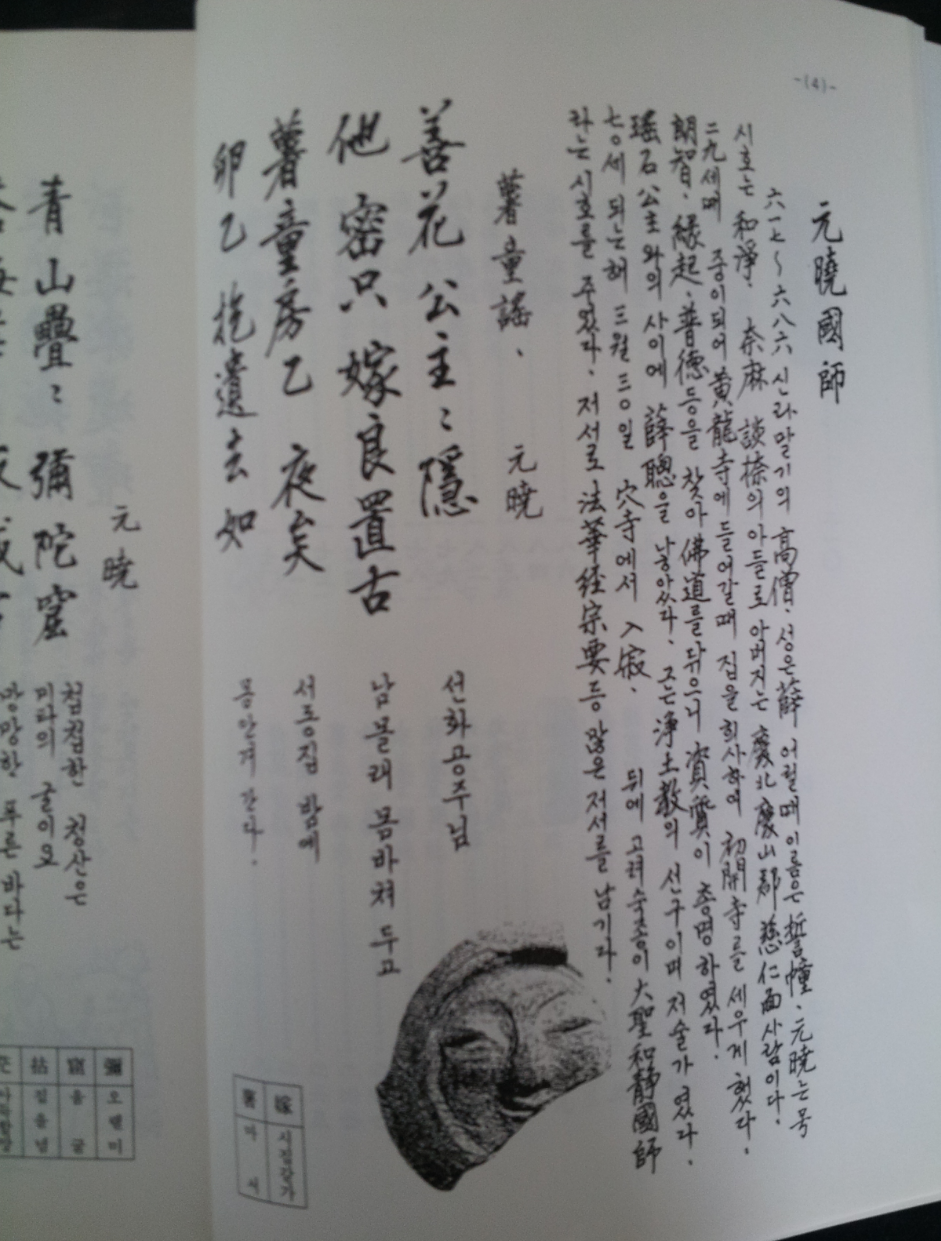 -(4)-
元曉國師
六一七~六八六 신라말기의 高僧. 성은 薛 어릴때 이름은 誓幢. 元曉는 号
시호는 和淨. 奈麻 談㮈의 아들로 아버지는 慶北 慶山郡 慈仁面 사람이다.
二九세때 중이되어 黃龍寺에 들어갈때 집을 희사하여 初開寺를 세우게 했다.
朗智. 緣起. 普德등을 찾아 佛道를 닦으니 資質이 총명하였다.
瑤石公主와의 사이에 薛聰을 낳았다. 그는 淨土敎의 선구이며 저술가 였다.
七○세 되는해 三월 三○일 穴寺에서 入寂. 뒤에 고려숙종이 大聖和靜國師
라는 시호를 주었다. 저서로 法華経宗要등 많은 저서를 남기다.
薯童謠. 元曉
善花公主主隱
他密只嫁良置古
薯童房乙 夜矣
卯乙抱遺去如
선화공주님
남몰래 몸바쳐 두고
서동집 밤에
몸안겨 간다.
嫁 시집갈가
薯 마 서
元曉
靑山疊疊 彌陀窟
첩첩한 청산은
미타의 굴이오
망망한 푸른 바다는
彌 오랠 미
窟 굴